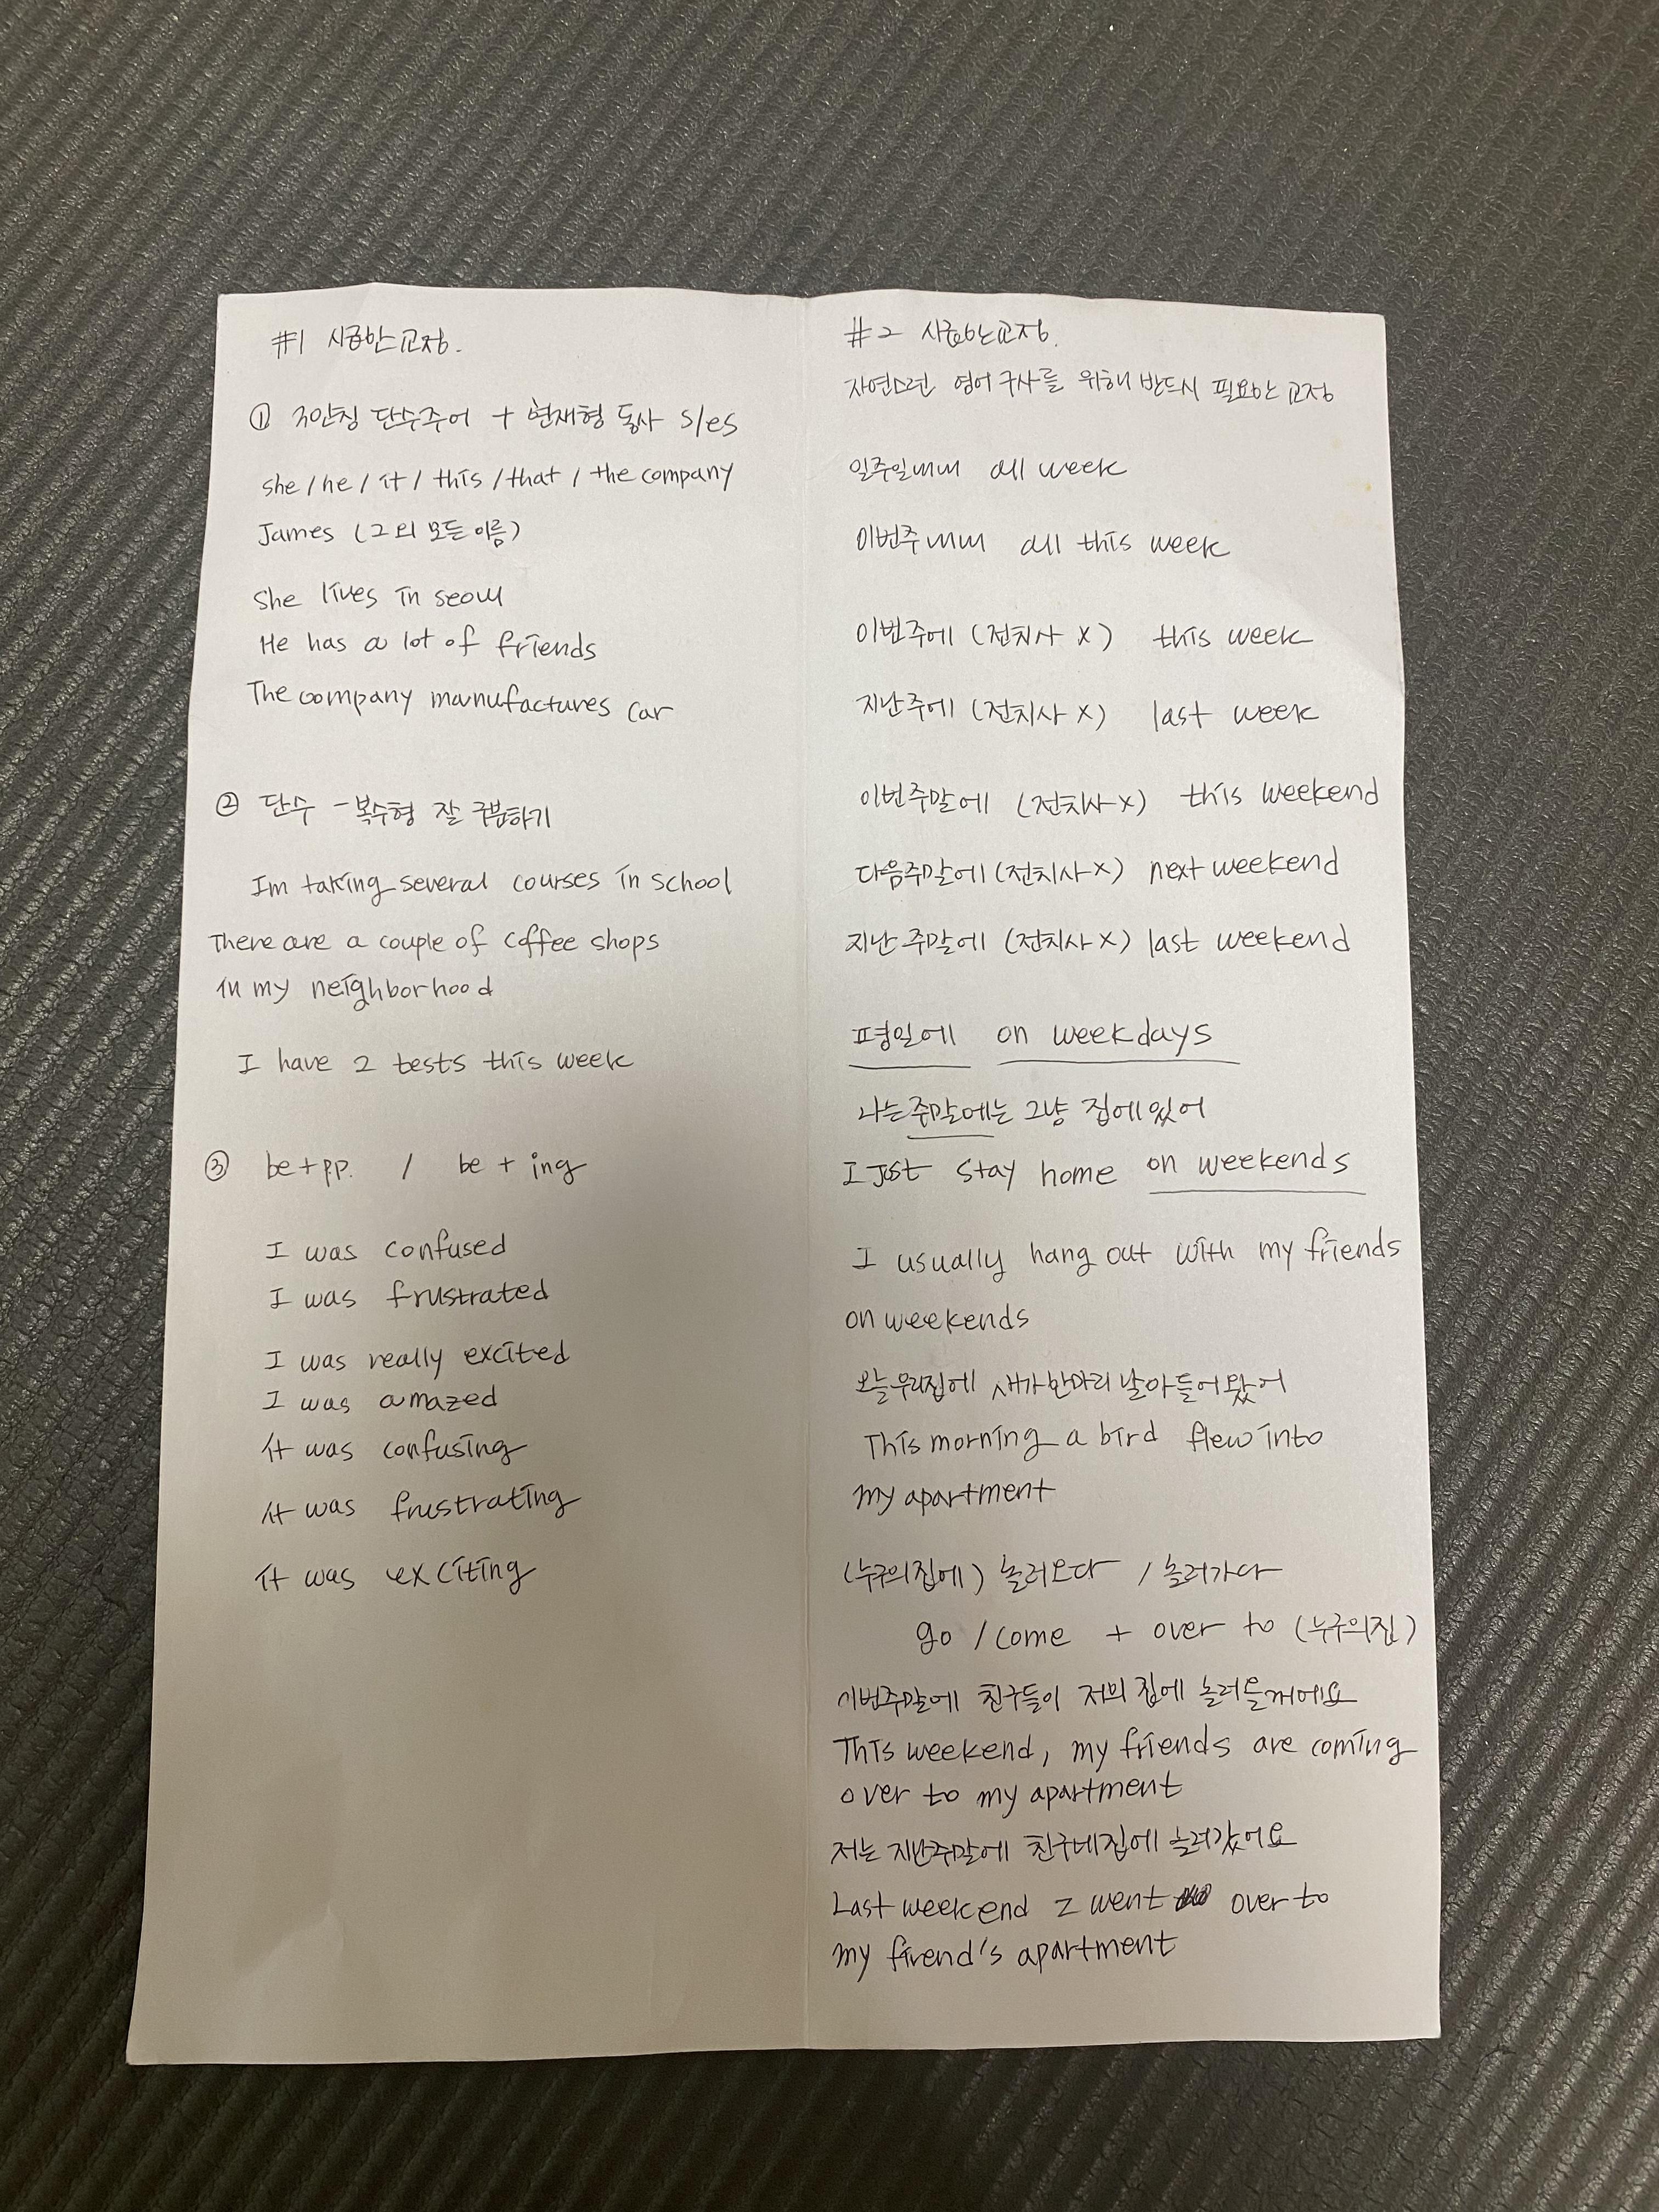 #1 시급한 교정.
① 3인칭 단수주어 + 현재형 동사 s/es
she / he / it / this / that / the company
James (그 외 모든 이름)
She lives in seoul
He has a lot of friends
The company manufactures car
② 단수 - 복수형 잘 구분하기
Im taking several courses in school
There are a couple of coffee shops
in my neighborhood
I have 2 tests this week
③ be + p.p. / be + ing
I was confused
I was frustrated
I was really excited
I was amazed
it was confusing
it was frustrating
it was exciting
#2 시급한 교정.
자연스런 영어 구사를 위해 반드시 필요한 교정
일주일내내 all week
이번주내내 all this week
이번주에 (전치사 X) this week
지난주에 (전치사 X) last week
이번주말에 (전치사 X) this weekend
다음주말에 (전치사 X) next weekend
지난주말에 (전치사 X) last weekend
평일에 on weekdays
나는 주말에는 그냥 집에 있어
I Just stay home on weekends
I usually hang out with my friends
on weekends
오늘 우리집에 새가 한마리 날아들어왔어
This morning a bird flew into
my apartment
(누구의 집에) 놀러오다 / 놀러가다
go / come + over to (누구의 집)
이번주말에 친구들이 저의 집에 놀러올꺼에요
This weekend, my friends are coming
over to my apartment
저는 지난주말에 친구네집에 놀러갔어요
Last weekend I went over to
my firend's apartment